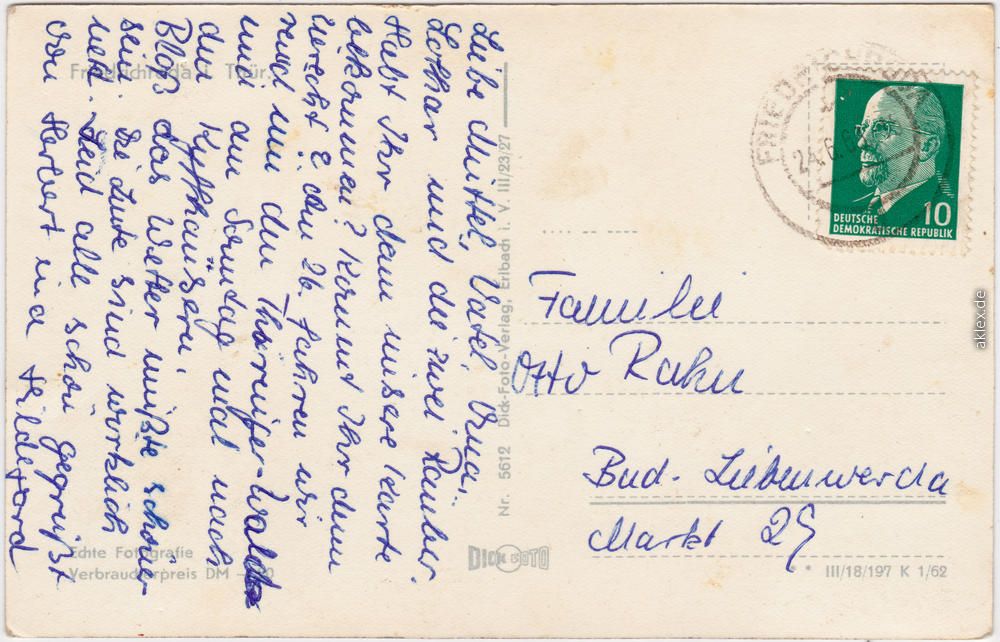 Friedrichroda i. Thür.
Liebe Muttel, Vatel Erna,
Lothar und die zwei Räuber.
Habt Ihr denn unsere Karte
bekommen? Kommt Ihr denn
zurecht? Am 26. fahren wir
rund um den Thüringer-Wald
und am Sonntag mal nach
den Kyffhäusern.
Bloß das Wetter müßte schöner
sein. Die Leute sind wirklich
nett. Seid alle schön gegrüßt
von Herbert und Hildegard
Echte Fotografie
Verbraucherpreis DM -,20
Nr. 5612 Dick-Foto-Verlag, Erlbach i. V. III/23/27
DICK FOTO
FRIEDRICHRODA
24.6.6
DEUTSCHE
DEMOKRATISCHE REPUBLIK
10
Familie
Otto Rahn
Bad-Liebenwerda
Markt 29
III/18/197 K 1/62
aklex.de